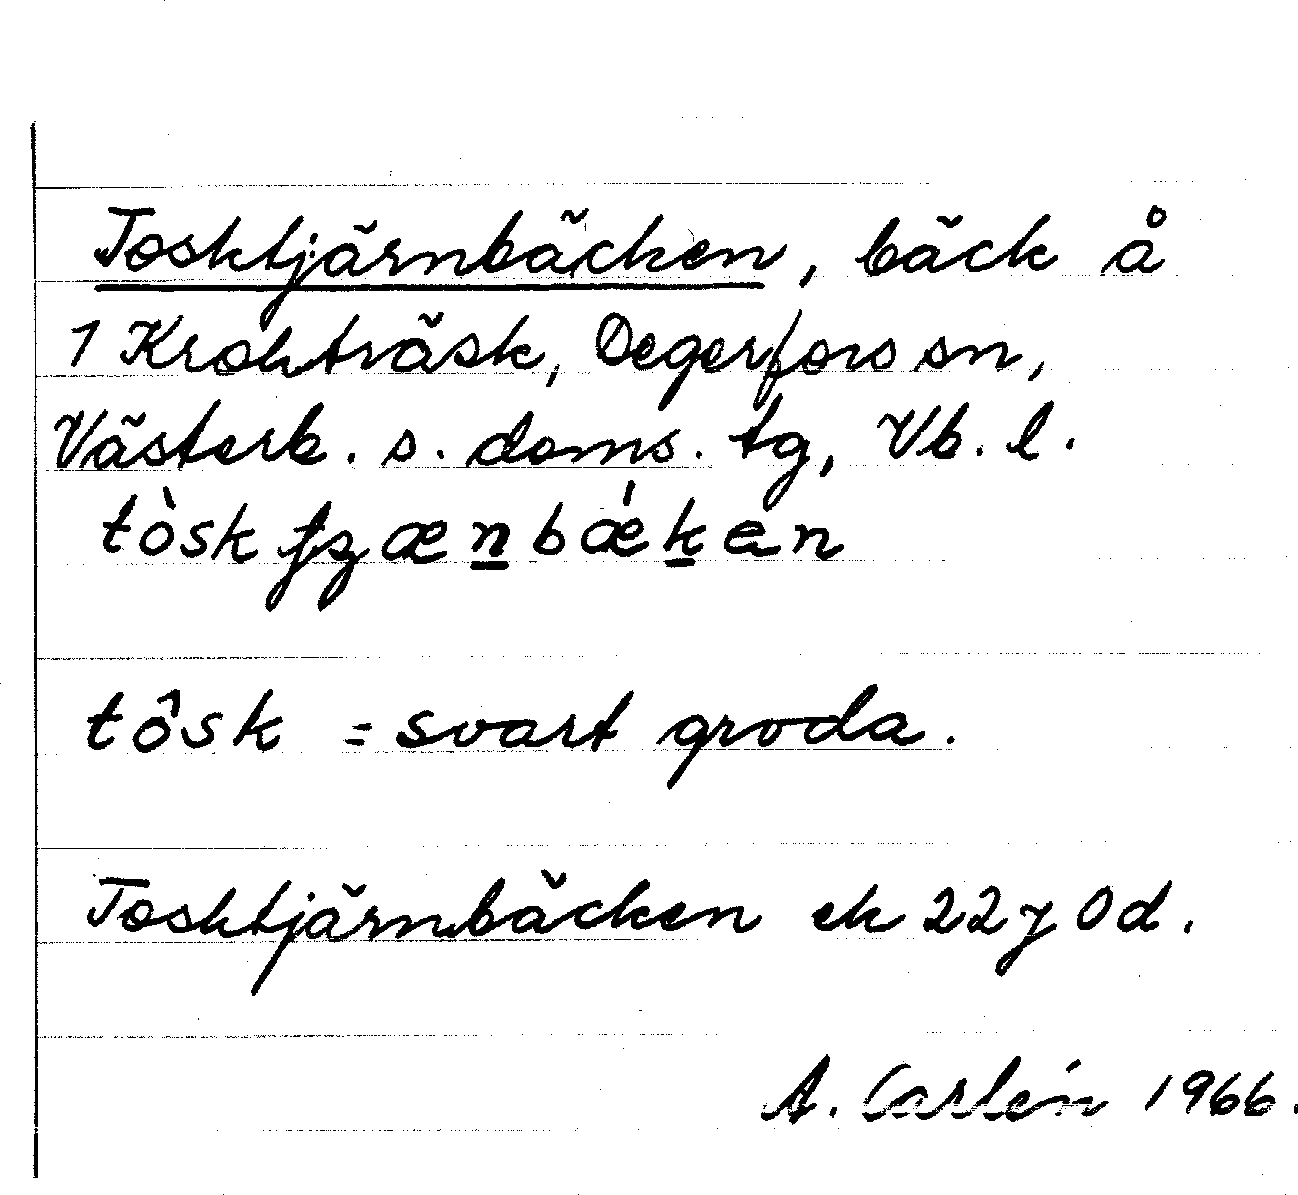 Tosktjärnbäcken, bäck å
1 Krokträsk, Degerfors sn,
Västerb. s. doms. tg, Vb. l.
tòsk
tôsk = svart groda.
Tosktjärnbäcken ek 22 j 0 d.
A. Carlén 1966.